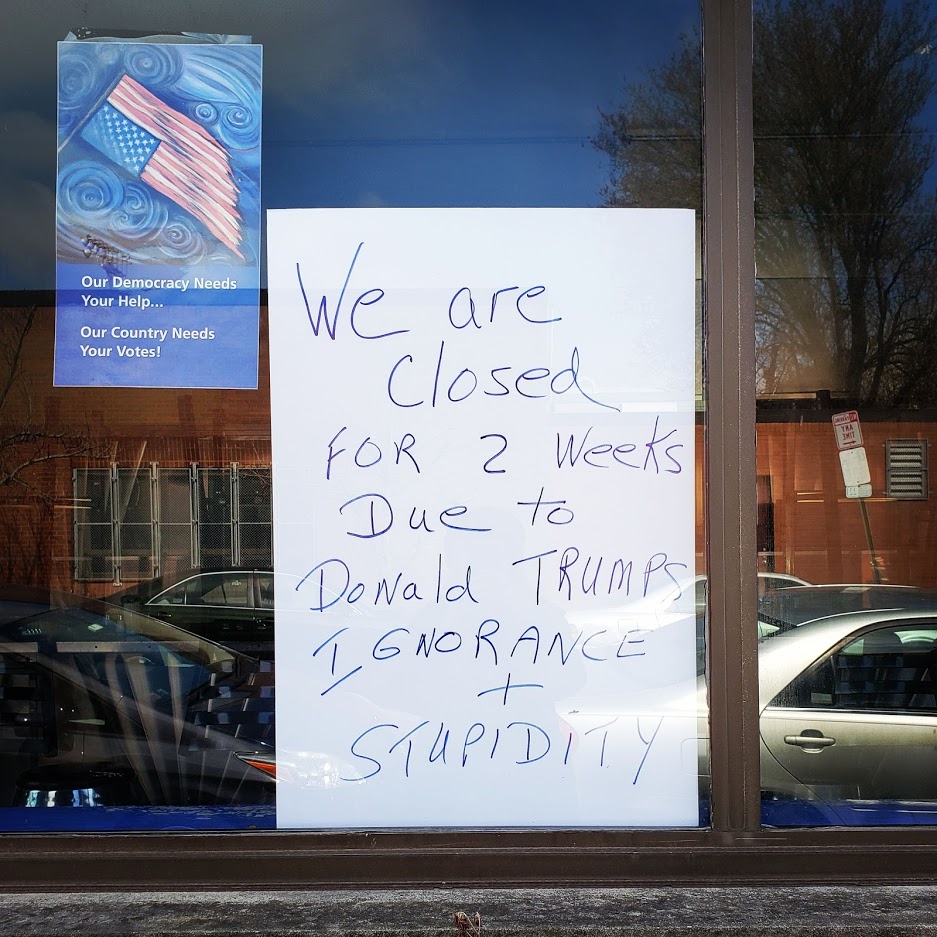 Our Democracy Needs
Your Help...
Our Country Needs
Your Votes!
We are
Closed
FOR 2 Weeks
Due to
Donald TRUMPS
IGNORANCE
+
STUPIDITY
ANY
TIME